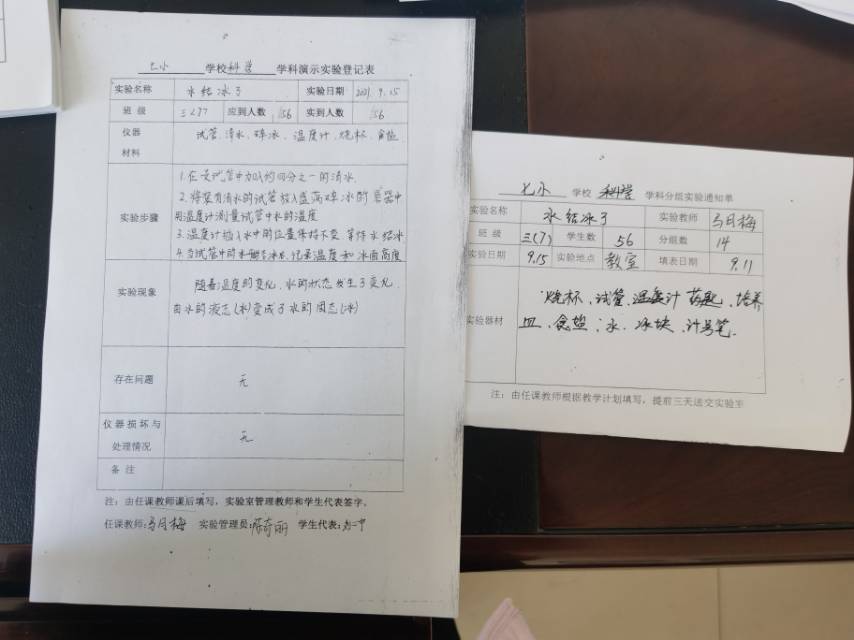 七小 学校 科学 学科演示实验登记表
实验名称 水结冰了 实验日期 2021.9.15
班 级 三(7) 应到人数 56 实到人数 56
仪器
材料
试管、清水、碎冰、温度计、烧杯、食盐
实验步骤
1.在试管中加入约四分之一的清水.
2.将装有清水的试管放入盛满碎冰的容器中
用温度计测量试管中水的温度
3.温度计插入水中的位置保持不变,等待水结冰
4.当试管中的水结冰后,记录温度和冰面高度
实验现象
随着温度的变化,水的状态发生了变化,
由水的液态(水)变成了水的固态(冰)
存在问题 无
仪器损坏与
处理情况
无
备 注
注:由任课教师课后填写,实验室管理教师和学生代表签字。
任课教师:马月梅 实验管理员: 学生代表:
七小 学校 科学 学科分组实验通知单
实验名称 水结冰了 实验教师 马月梅
班 级 三(7) 学生数 56 分组数 14
实验日期 9.15 实验地点 教室 填表日期 9.11
实验器材
烧杯、试管、温度计、药匙、培养
皿、食盐、水、冰块、计号笔.
注:由任课教师根据教学计划填写,提前三天送交实验室